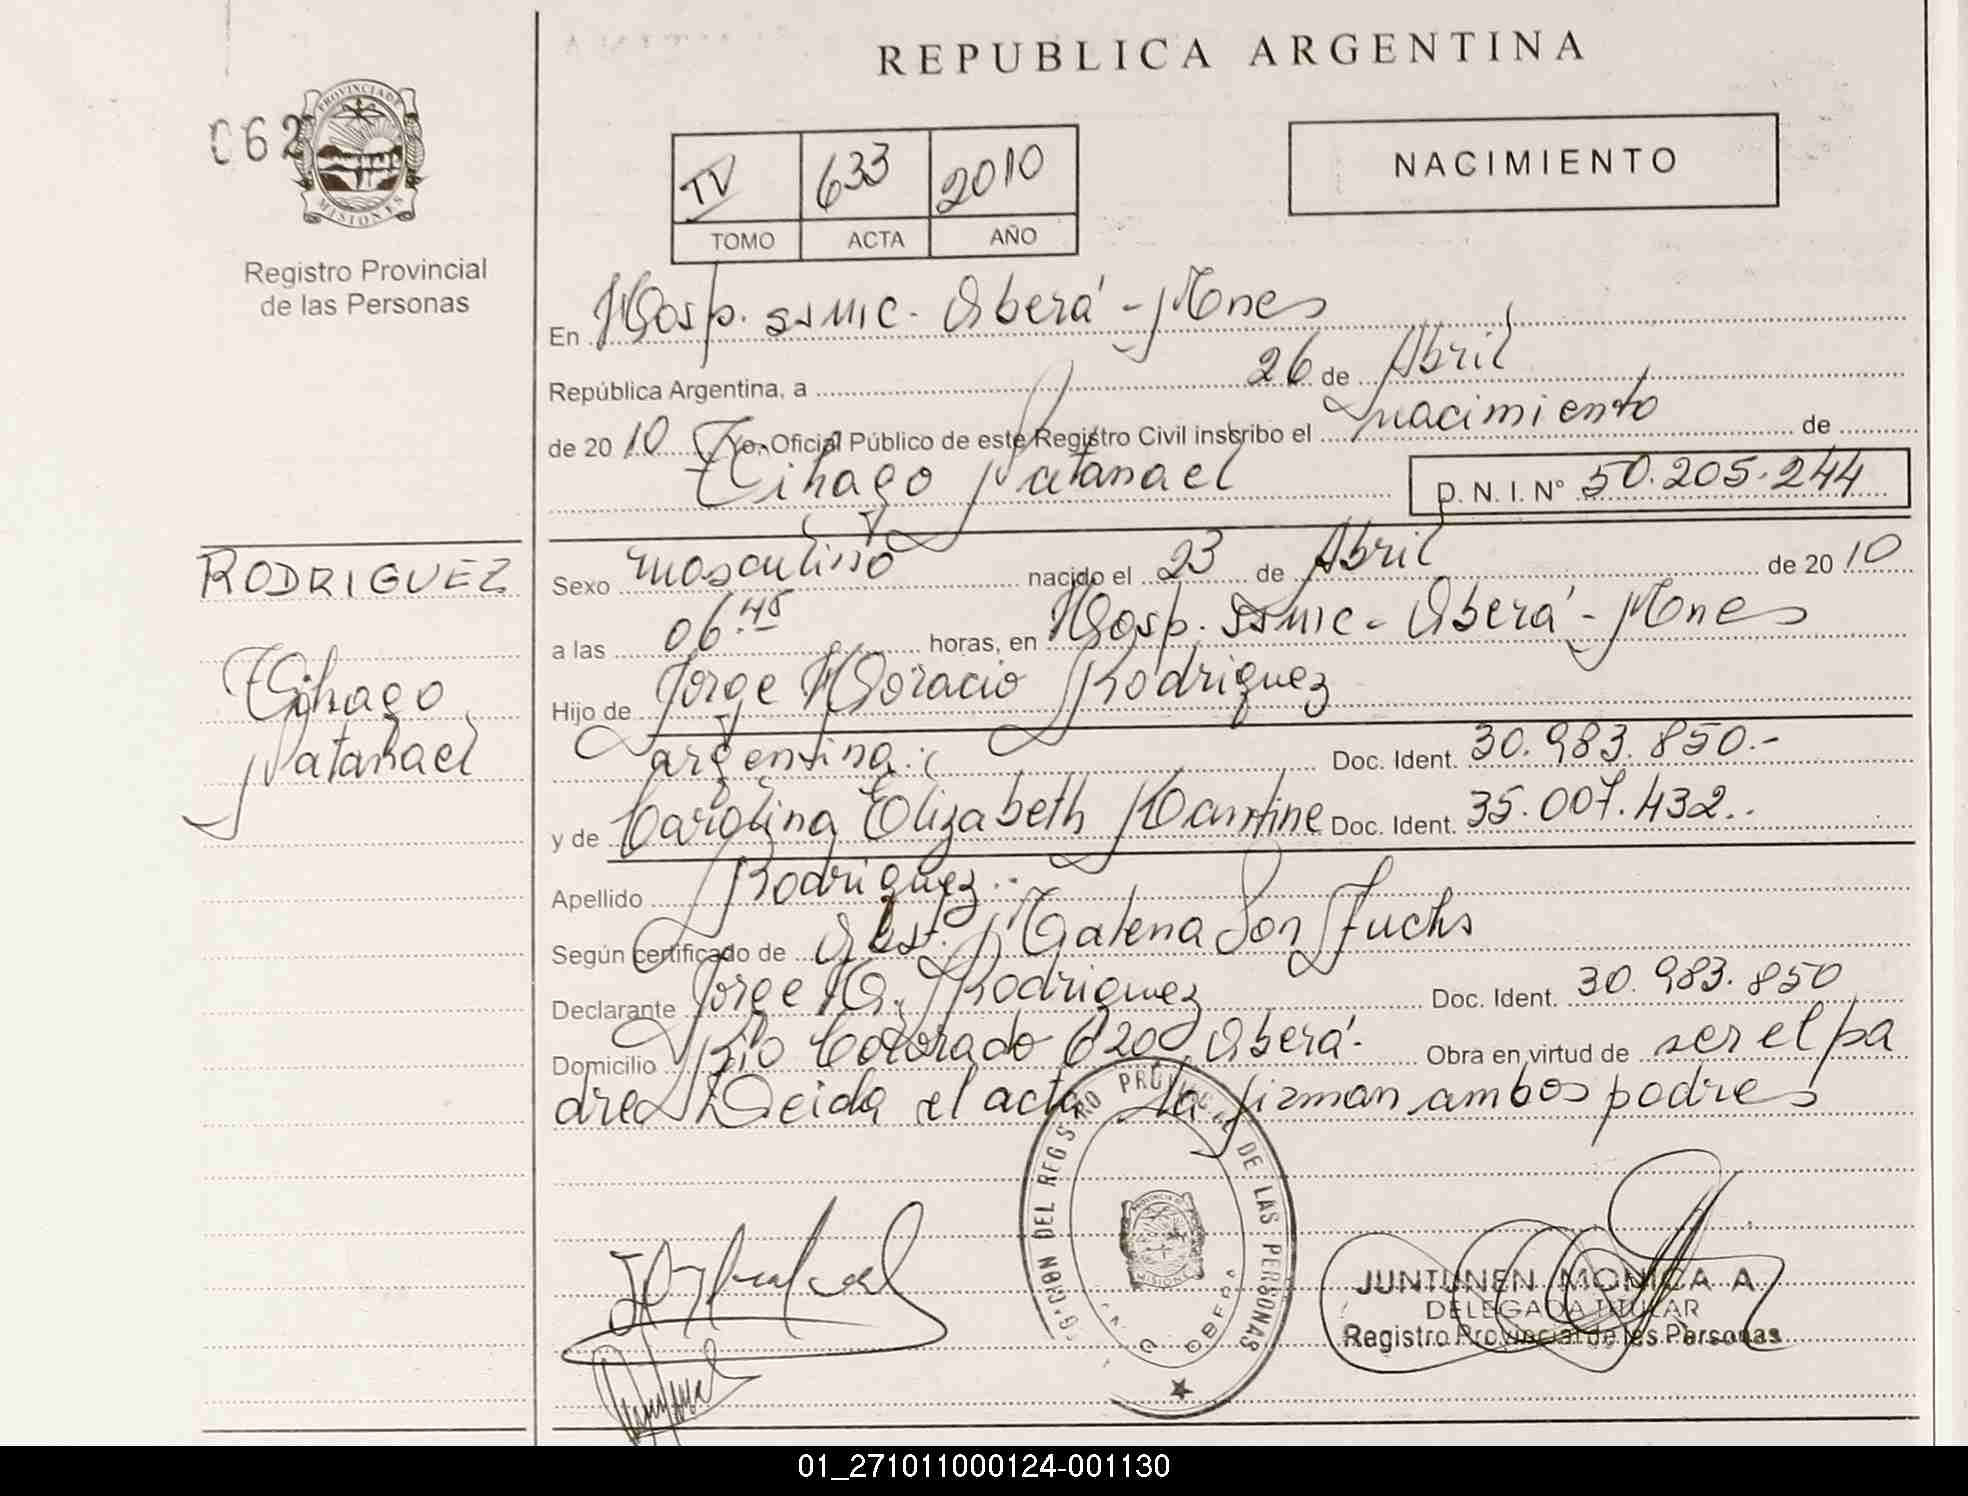 REPUBLICA ARGENTINA
062
PROVINCIA DE
MISIONES
Registro Provincial
de las Personas
NACIMIENTO
IV 633 2010
TOMO ACTA AÑO
En Hosp. SSMIC - Oberá - Mnes
República Argentina, a 26 de Abril
de 2010 Yo, Oficial Público de este Registro Civil inscribo el nacimiento de
Tihago Natanael D. N. I. N° 50.205.244
RODRIGUEZ
Tihago
Natanael
Sexo masculino nacido el 23 de Abril de 2010
a las 06.45 horas, en Hosp. SSMIC - Oberá - Mnes
Hijo de Jorge Horacio Rodriguez
argentina. Doc. Ident. 30.983.850.-
y de Carolina Elizabeth Doc. Ident. 35.007.432..
Apellido Rodriguez..
Según certificado de Obst. Fuchs
Declarante Jorge H. Rodriguez Doc. Ident. 30.983.850
Domicilio Rio Colorado 620 Oberá. Obra en virtud de ser el pa
dre. Leida el acta la firman ambos padres
REGISTRO PROVINCIAL DE LAS PERSONAS
MISIONES
JUNTUNEN MONICA A.
DELEGADA TITULAR
Registro Provincial de las Personas
01_271011000124-001130